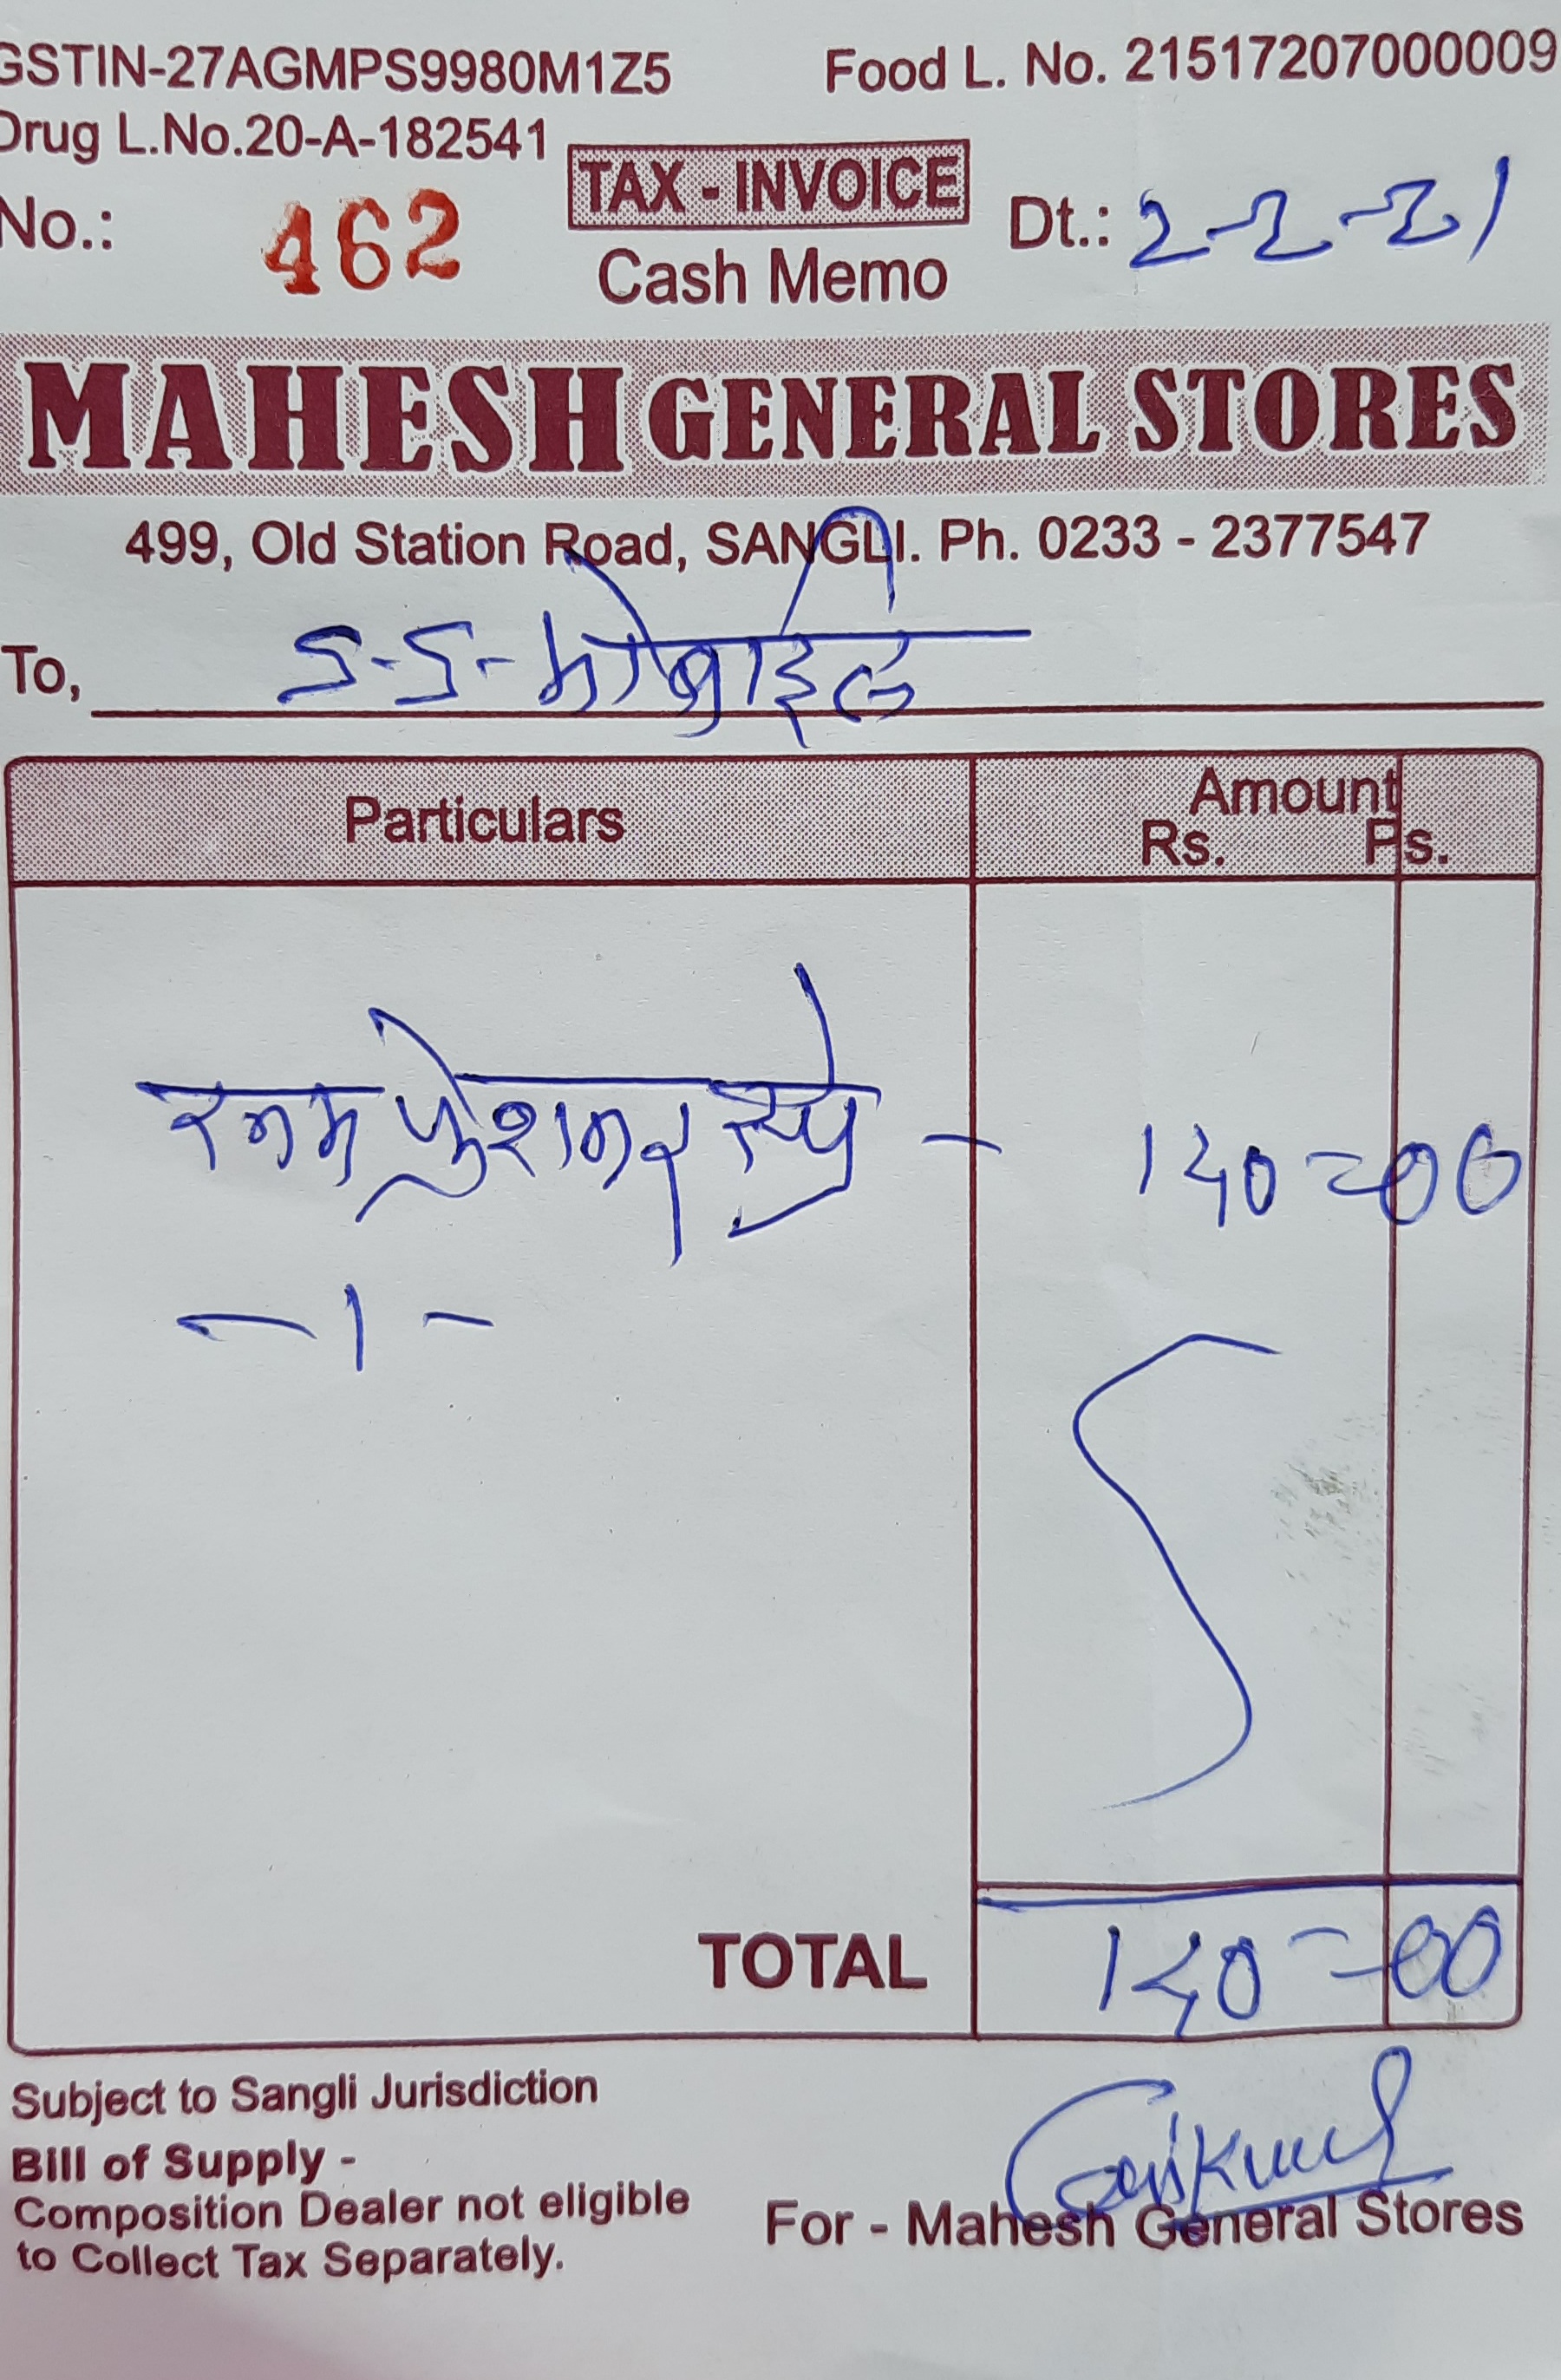 GSTIN-27AGMPS9980M1Z5 Food L. No. 21517207000009
Drug L.No.20-A-182541
TAX - INVOICE
No.: 462 Dt.: 2-2-21
Cash Memo
MAHESH GENERAL STORES
499, Old Station Road, SANGLI. Ph. 0233 - 2377547
To, S-S-मोबाईल
Particulars Amount
Rs. Ps.
रूम फ्रेशनर स्प्रे - 140=00
- 1 -
TOTAL 140=00
Subject to Sangli Jurisdiction
Bill of Supply -
Composition Dealer not eligible
to Collect Tax Separately.
For - Mahesh General Stores